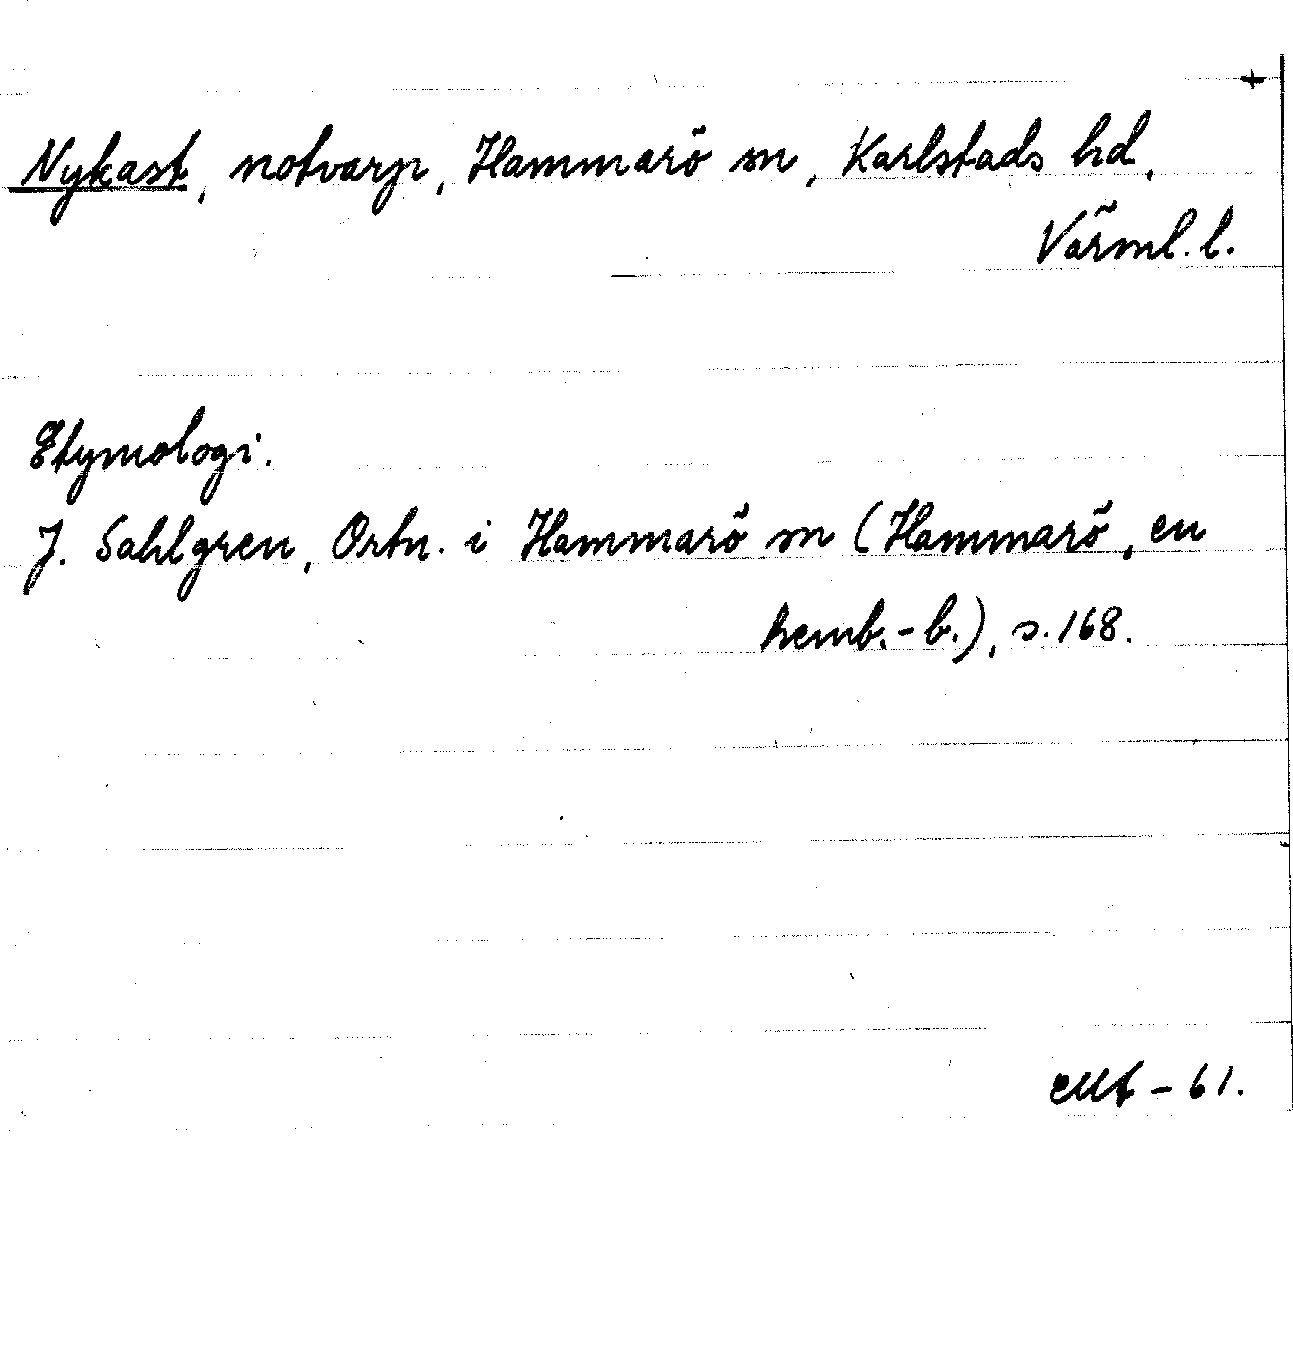 Nykast, notvarp, Hammarö sn, Karlstads hd,
Värml. l.
Etymologi.
J. Sahlgren, Ortn. i Hammarö sn (Hammarö, en
hemb.-b.), s. 168.
-61.